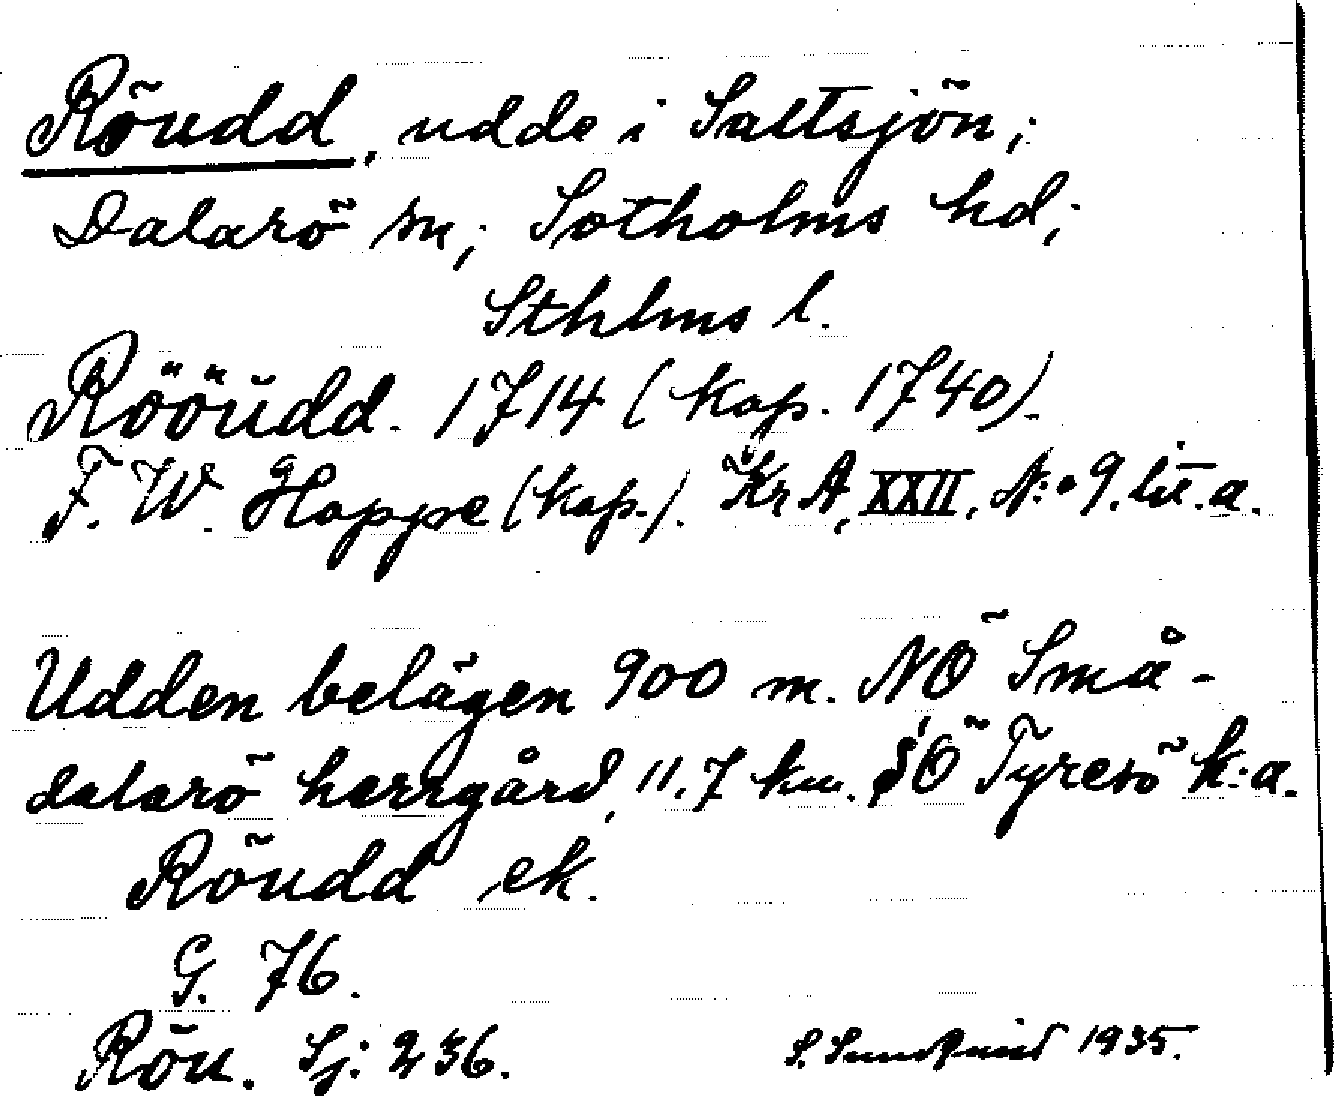 Röudd, udde i Saltsjön;
Dalarö sn; Sotholms hd;
Sthlms l.
Rööudd. 1714 (kop. 1740).
F. W. Hoppe (kop.). Kr A, XXII, N:o 9. lit. a.
Udden belägen 900 m. NÖ Små-
dalarö herrgård, 11.7 km. SÖ Tyresö k:a.
Röudd ek.
G. 76.
Röu. Sj: 236.
S. Sundqvist 1935.